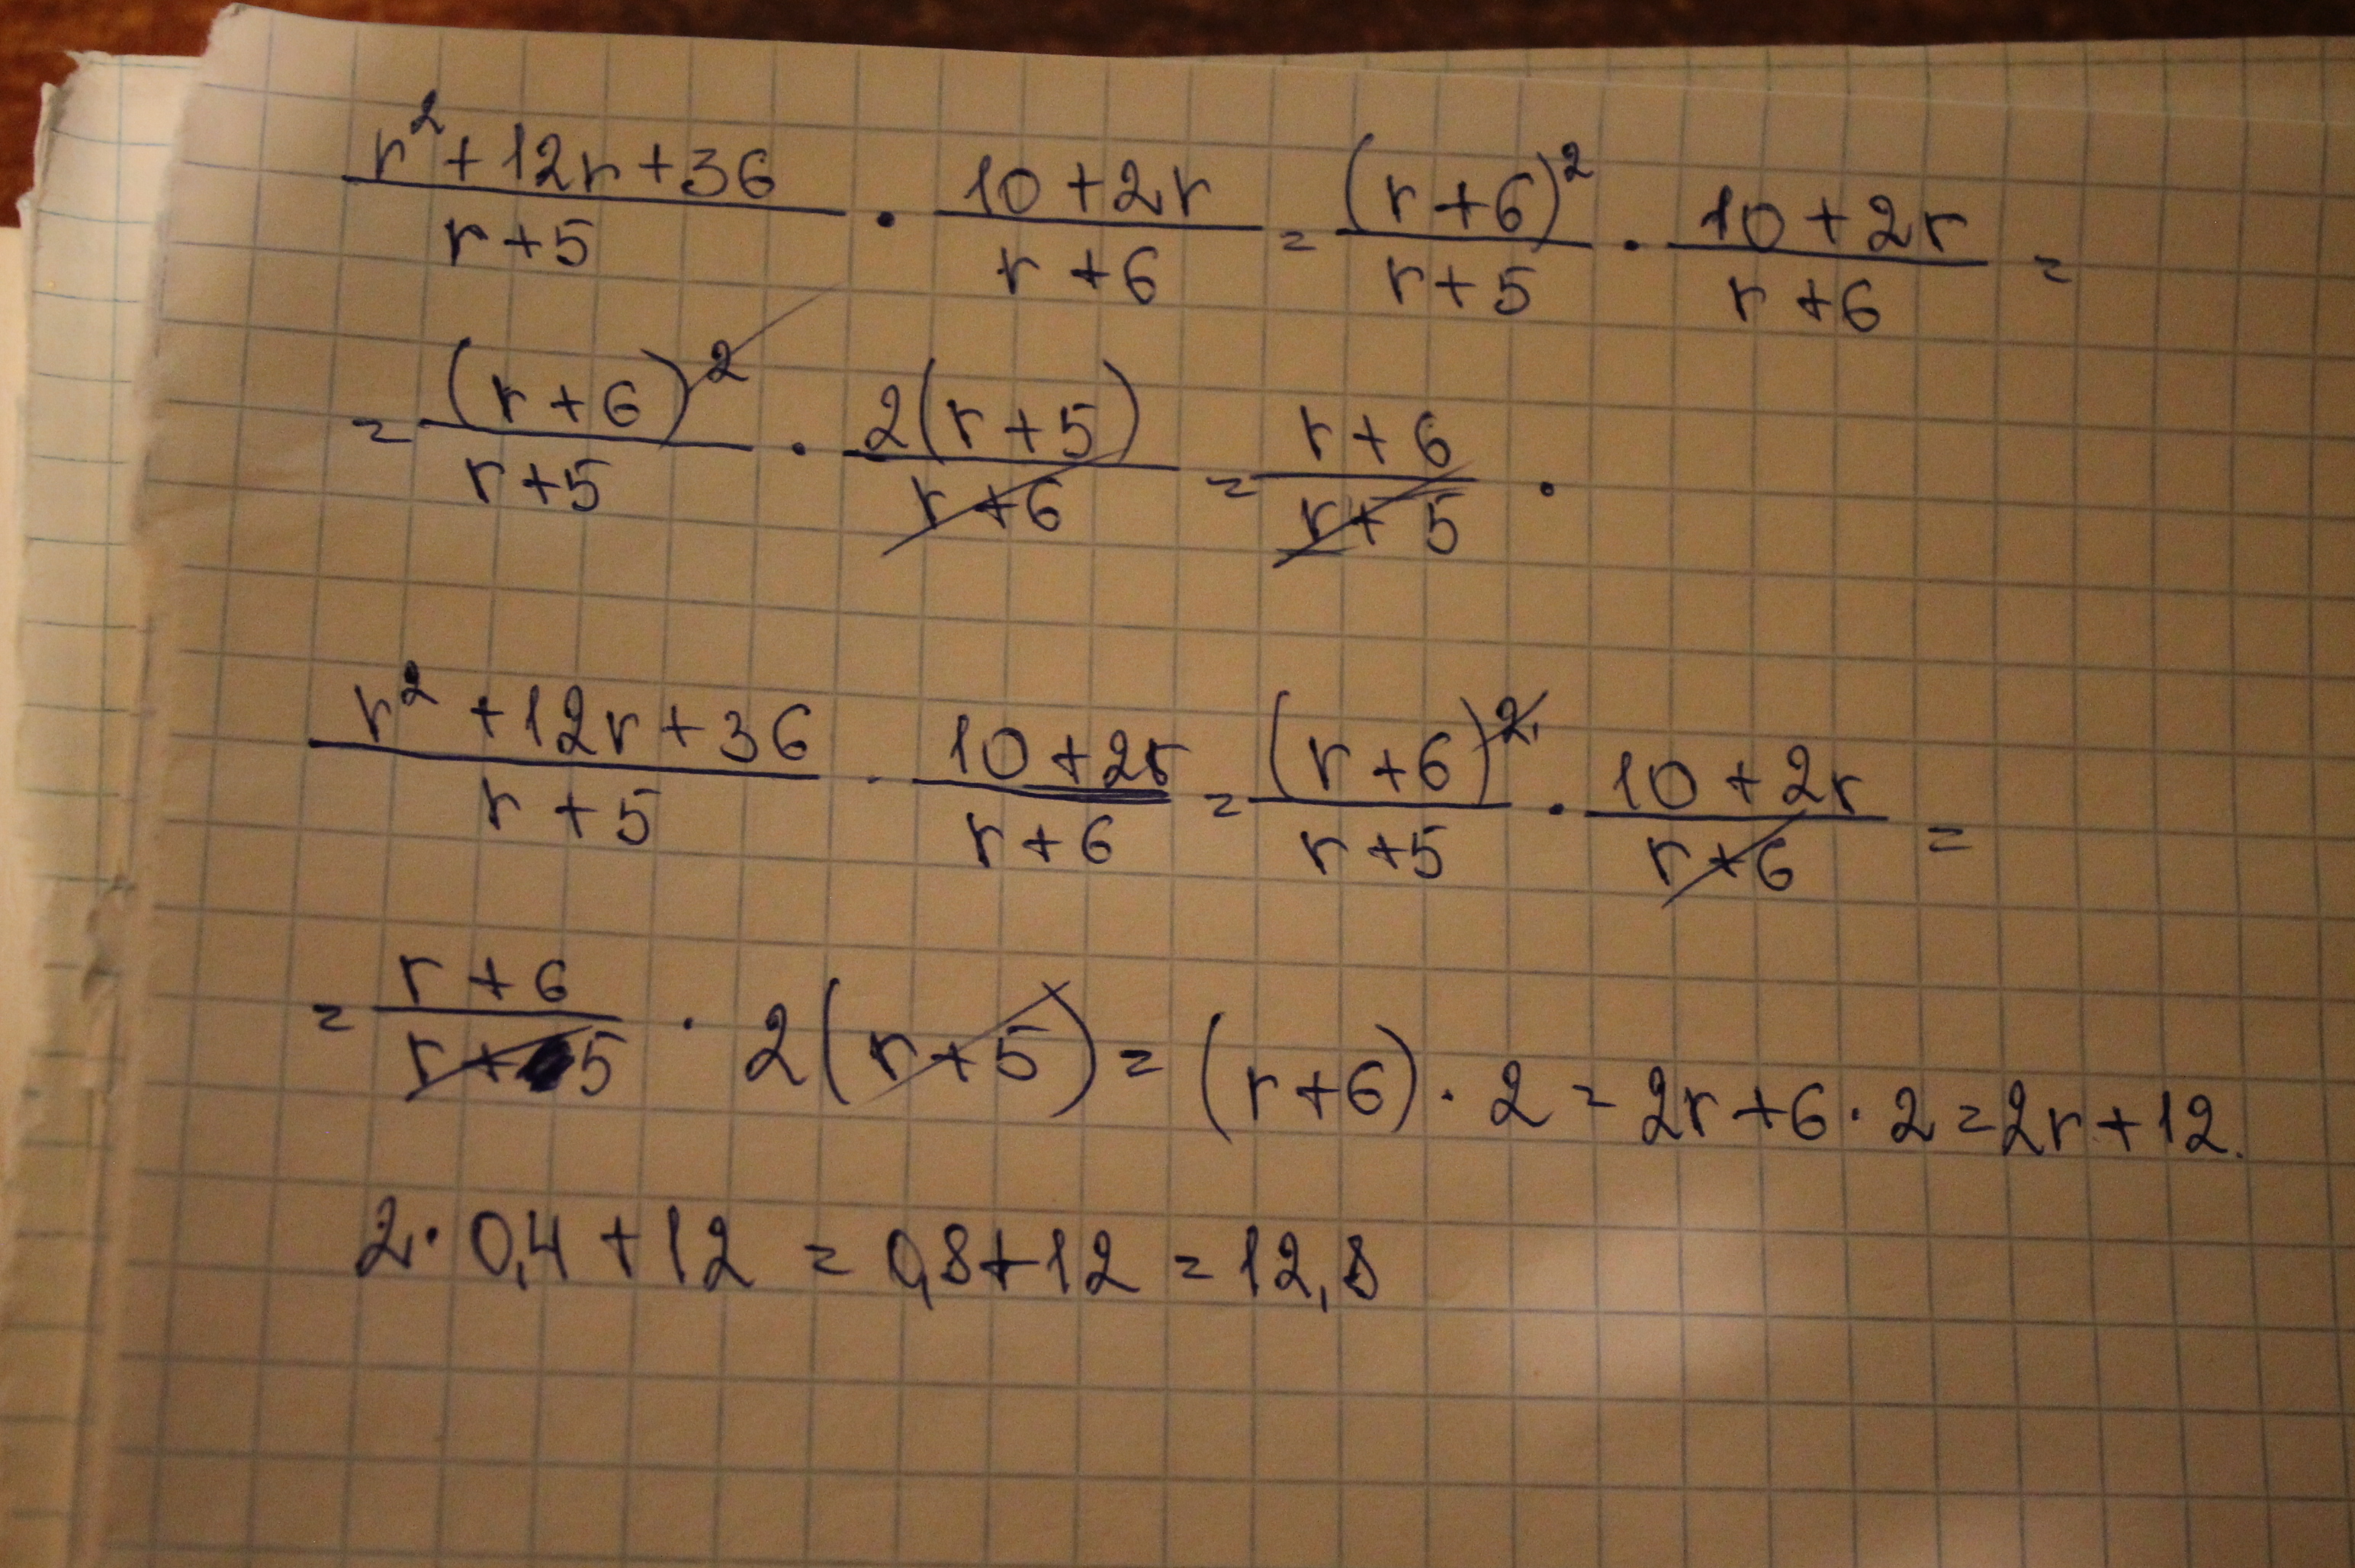 (r² + 12r + 36)/(r + 5) · (10 + 2r)/(r + 6) = (r + 6)²/(r + 5) · (10 + 2r)/(r + 6) =
= (r + 6)²/(r + 5) · 2(r + 5)/(r + 6) = (r + 6)/(r + 5) ·
(r² + 12r + 36)/(r + 5) · (10 + 2r)/(r + 6) = (r + 6)²/(r + 5) · (10 + 2r)/(r + 6) =
= (r + 6)/(r + 5) · 2(r + 5) = (r + 6) · 2 = 2r + 6 · 2 = 2r + 12.
2 · 0,4 + 12 = 0,8 + 12 = 12,8